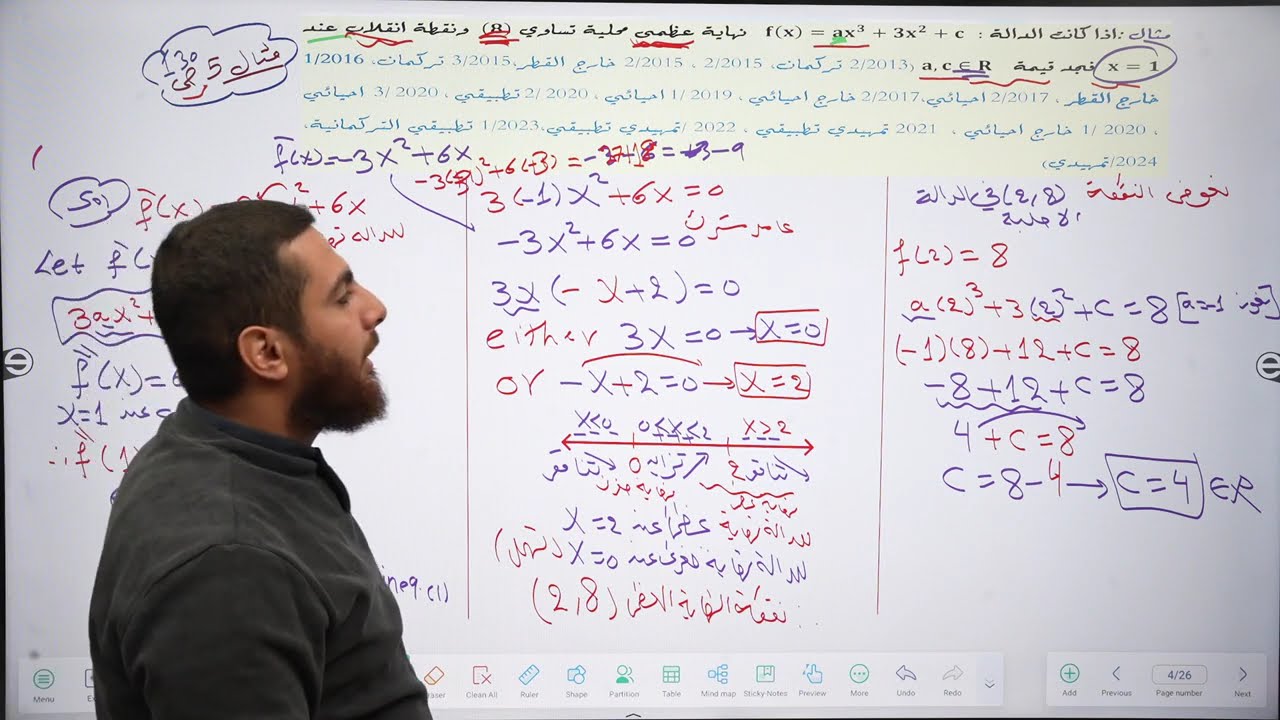 مثال :اذا كانت الدالة : f(x) = ax³ + 3x² + c نهاية عظمى محلية تساوي (8) ونقطة انقلاب عند
x = 1 فجد قيمة a, c ∈ R (2/2013 تركمان، 2/2015 ، 2/2015 خارج القطر، 3/2015 تركمان، 1/2016
خارج القطر ، 2/2017 احيائي، 2/2017 خارج احيائي ، 2019 /1 احيائي ، 2020 /2 تطبيقي ، 2020 /3 احيائي
، 2020 /1 خارج احيائي ، 2021 تمهيدي تطبيقي ، 2022 /تمهيدي تطبيقي، 1/2023 تطبيقي التركمانية،
2024/تمهيدي)
مثال 5 ص
130
f̄(x)=-3x²+6x
Sol
+6x
Let f̄(
3ax²+
x=1
ineq.(1)
3(-1)x²+6x=0
-3x²+6x=0
عامل مشترك
3x(-x+2)=0
either 3x=0→x=0
or -x+2=0→x=2
x<0 0<x<2 x>2
0 2
للدالة نهاية عظمى عند x=2
للدالة نهاية صغرى عند x=0 (تهمل)
نقطة النهاية العظمى (2,8)
نعوض النقطة (2,8) في الدالة
الاصلية
f(2)=8
a(2)³+3(2)²+c=8 [a=-1 نعوض]
(-1)(8)+12+c=8
-8+12+c=8
4+c=8
c=8-4→c=4∈R
Menu
Eraser
Clean All
Ruler
Shape
Partition
Table
Mind map
Sticky-Notes
Preview
More
Undo
Redo
Add
Previous
4/26
Page number
Next